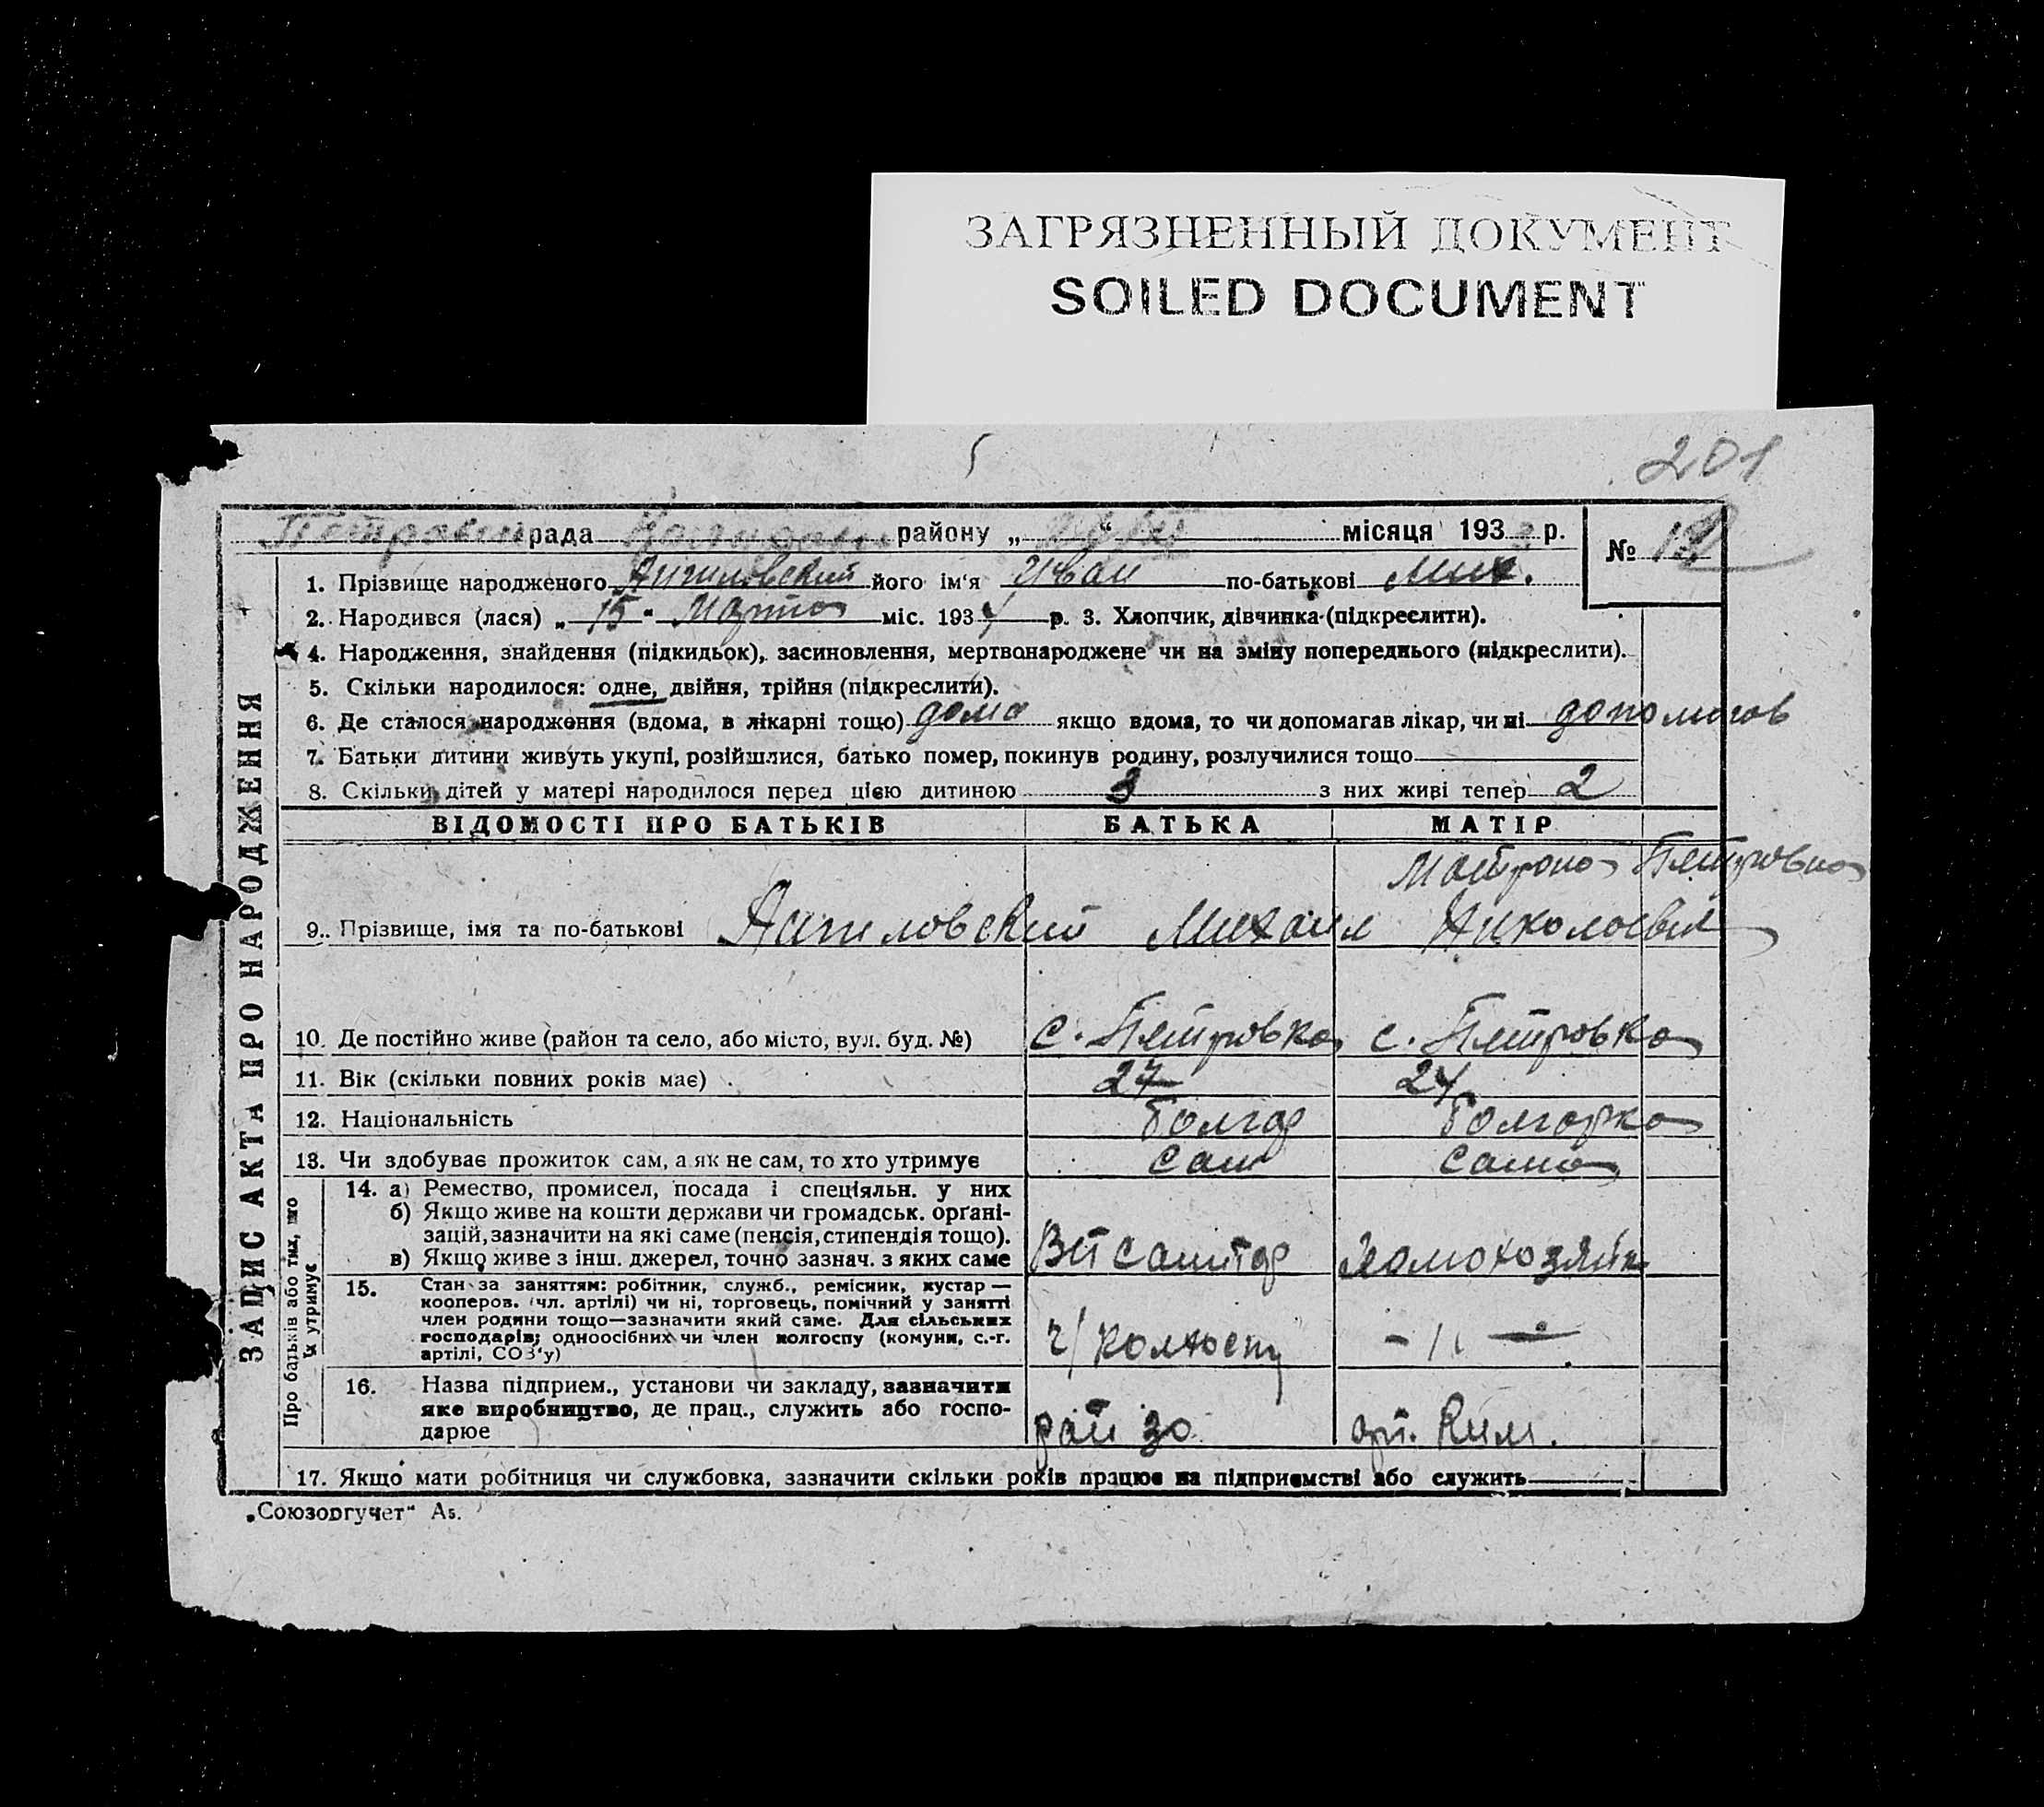 ЗАГРЯЗНЕННЫЙ ДОКУМЕНТ
SOILED DOCUMENT
201
рада району „ “ місяця 193 р.
№ 19
ЗАПИС АКТА ПРО НАРОДЖЕННЯ
1. Прізвище народженого його ім‘я Иван по-батькові Мих.
2. Народився (лася) „ 15 “ Марта міс. 1934 р. 3. Хлопчик, дівчинка (підкреслити).
4. Народження, знайдення (підкидьок), засиновлення, мертвонароджене чи на зміну попереднього (підкреслити).
5. Скільки народилося: одне, двійня, трійня (підкреслити).
6. Де сталося народження (вдома, в лікарні тощо) дома якщо вдома, то чи допомагав лікар, чи ні допомогав
7. Батьки дитини живуть укупі, розійшлися, батько помер, покинув родину, розлучилися тощо
8. Скільки дітей у матері народилося перед цією дитиною 3 з них живі тепер 2
ВІДОМОСТІ ПРО БАТЬКІВ БАТЬКА МАТІР
Матрона Петровна
9. Прізвище, імя та по-батькові Михаил Николаевич
10. Де постійно живе (район та село, або місто, вул. буд. №) с. Петровка с. Петровка
11. Вік (скільки повних років має) 27 24
12. Національність болгар болгарка
13. Чи здобуває прожиток сам, а як не сам, то хто утримує сам сама
Про батьків або тих, що їх утримує
14. а) Ремество, промисел, посада і спеціяльн. у них
б) Якщо живе на кошти держави чи громадськ. органі-
зацій, зазначити на які саме (пенсія, стипендія тощо).
в) Якщо живе з інш. джерел, точно зазнач. з яких саме Ветсанитар домохозяйк
15. Стан за заняттям: робітник, служб., ремісник, кустар —
кооперов. (чл. артілі) чи ні, торговець, помічний у занятті
член родини тощо—зазначити який саме. Для сільських
господарів; одноосібних чи член колгоспу (комуни, с.-г.
артілі, СОЗ‘у) ч/колхоспу - 11 -
16. Назва підприєм., установи чи закладу, зазначити
яке виробництво, де прац., служить або госпо-
дарює рай зо арт. Ким.
17. Якщо мати робітниця чи службовка, зазначити скільки років працює на підприємстві або служить
„Союзоргучет“ А5.